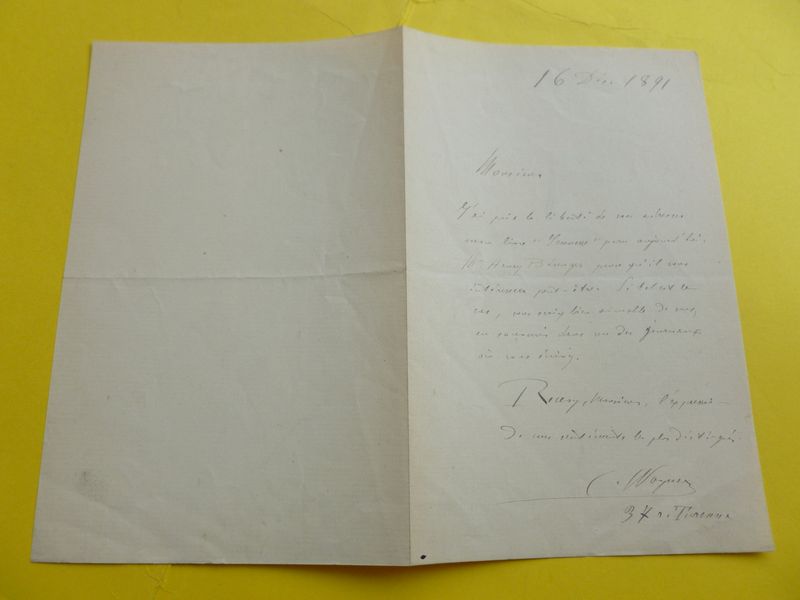 16 Déc. 1891
Monsieur,
J'ai pris la liberté de vous adresser
mon livre "Jeunesse" paru aujourd'hui,
Mr Henry Bérenger pense qu'il vous
intéressera peut-être. Si tel est le
cas, vous seriez bien aimable de
en dans un des journaux
où vous écrivez.
Recevez, Monsieur, l'expression
de mes sentiments les plus distingués.
C. Wagner
r. Turenne